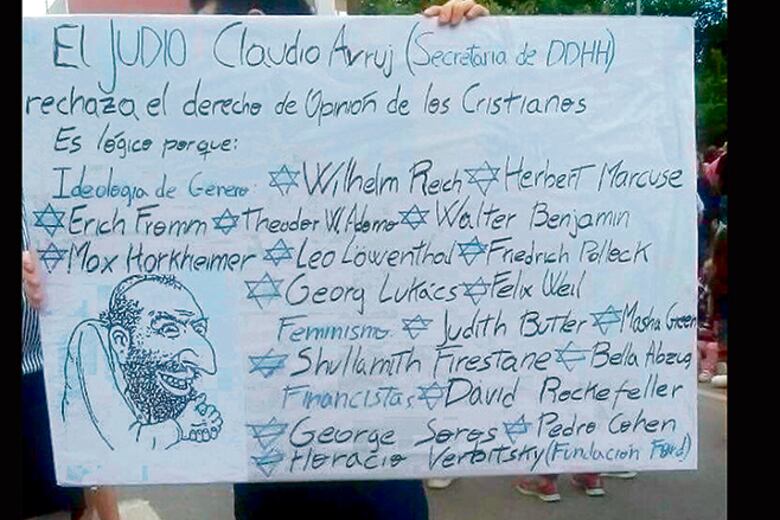 El JUDIO Claudio Avruj (Secretaria de DDHH)
rechaza el derecho de Opinión de los Cristianos
Es lógico porque:
Ideología de Genero: Wilhelm Reich Herbert Marcuse
Erich Fromm Theodor W. Adorno Walter Benjamin
Max Horkheimer Leo Löwenthal Friedrich Pollock
Georg Lukács Felix Weil
Feminismo Judith Butler Masha Green
Shullamith Firestane Bella Abzug
Financistas David Rockefeller
George Soros Pedro Cohen
Horacio Verbitsky (Fundación Ford)